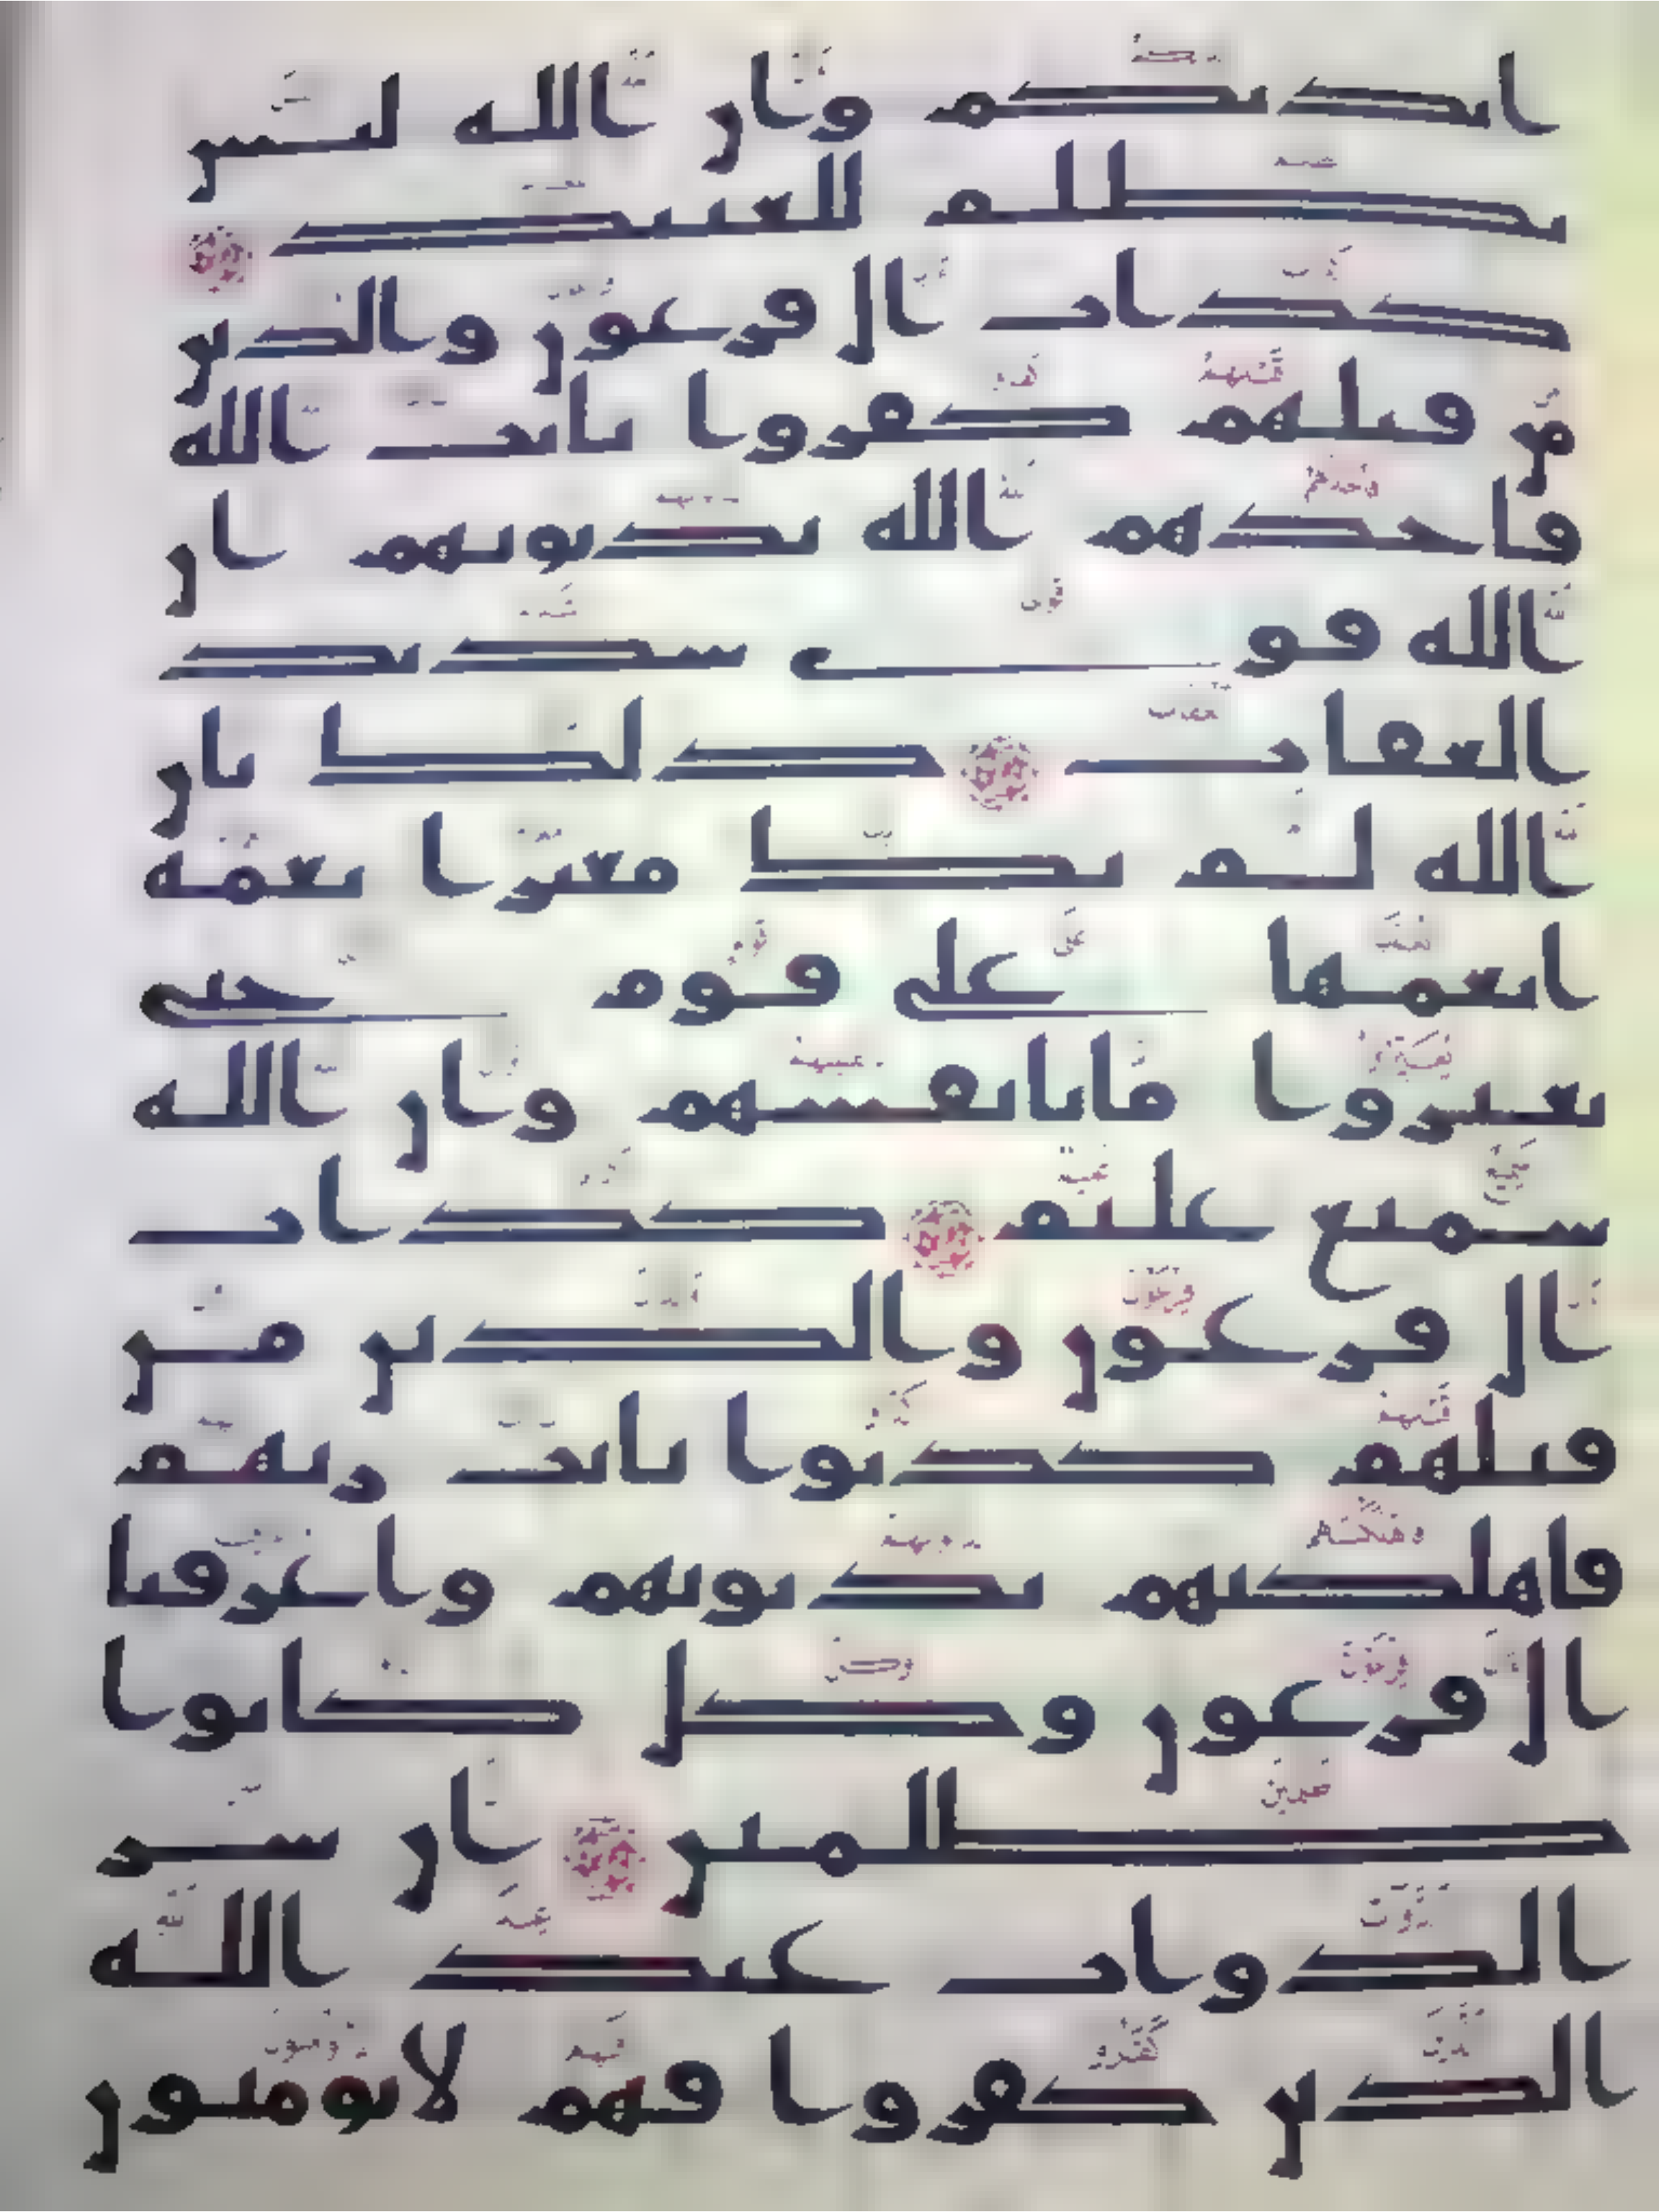 ايديكم وان الله ليس
بظلم للعبيد
كداب ال فرعون والذين
من قبلهم كفروا بايت الله
فاخذهم الله بذنوبهم ان
الله قوى شديد
العقاب ذلك بان
الله لم يك مغيرا نعمة
انعمها على قوم حتى
يغيروا ما بانفسهم وان الله
سميع عليم كداب
ال فرعون والذين من
قبلهم كذبوا بايت ربهم
فاهلكنهم بذنوبهم واغرقنا
ال فرعون وكل كانوا
ظلمين ان شر
الدواب عند الله
الذين كفروا فهم لا يومنون